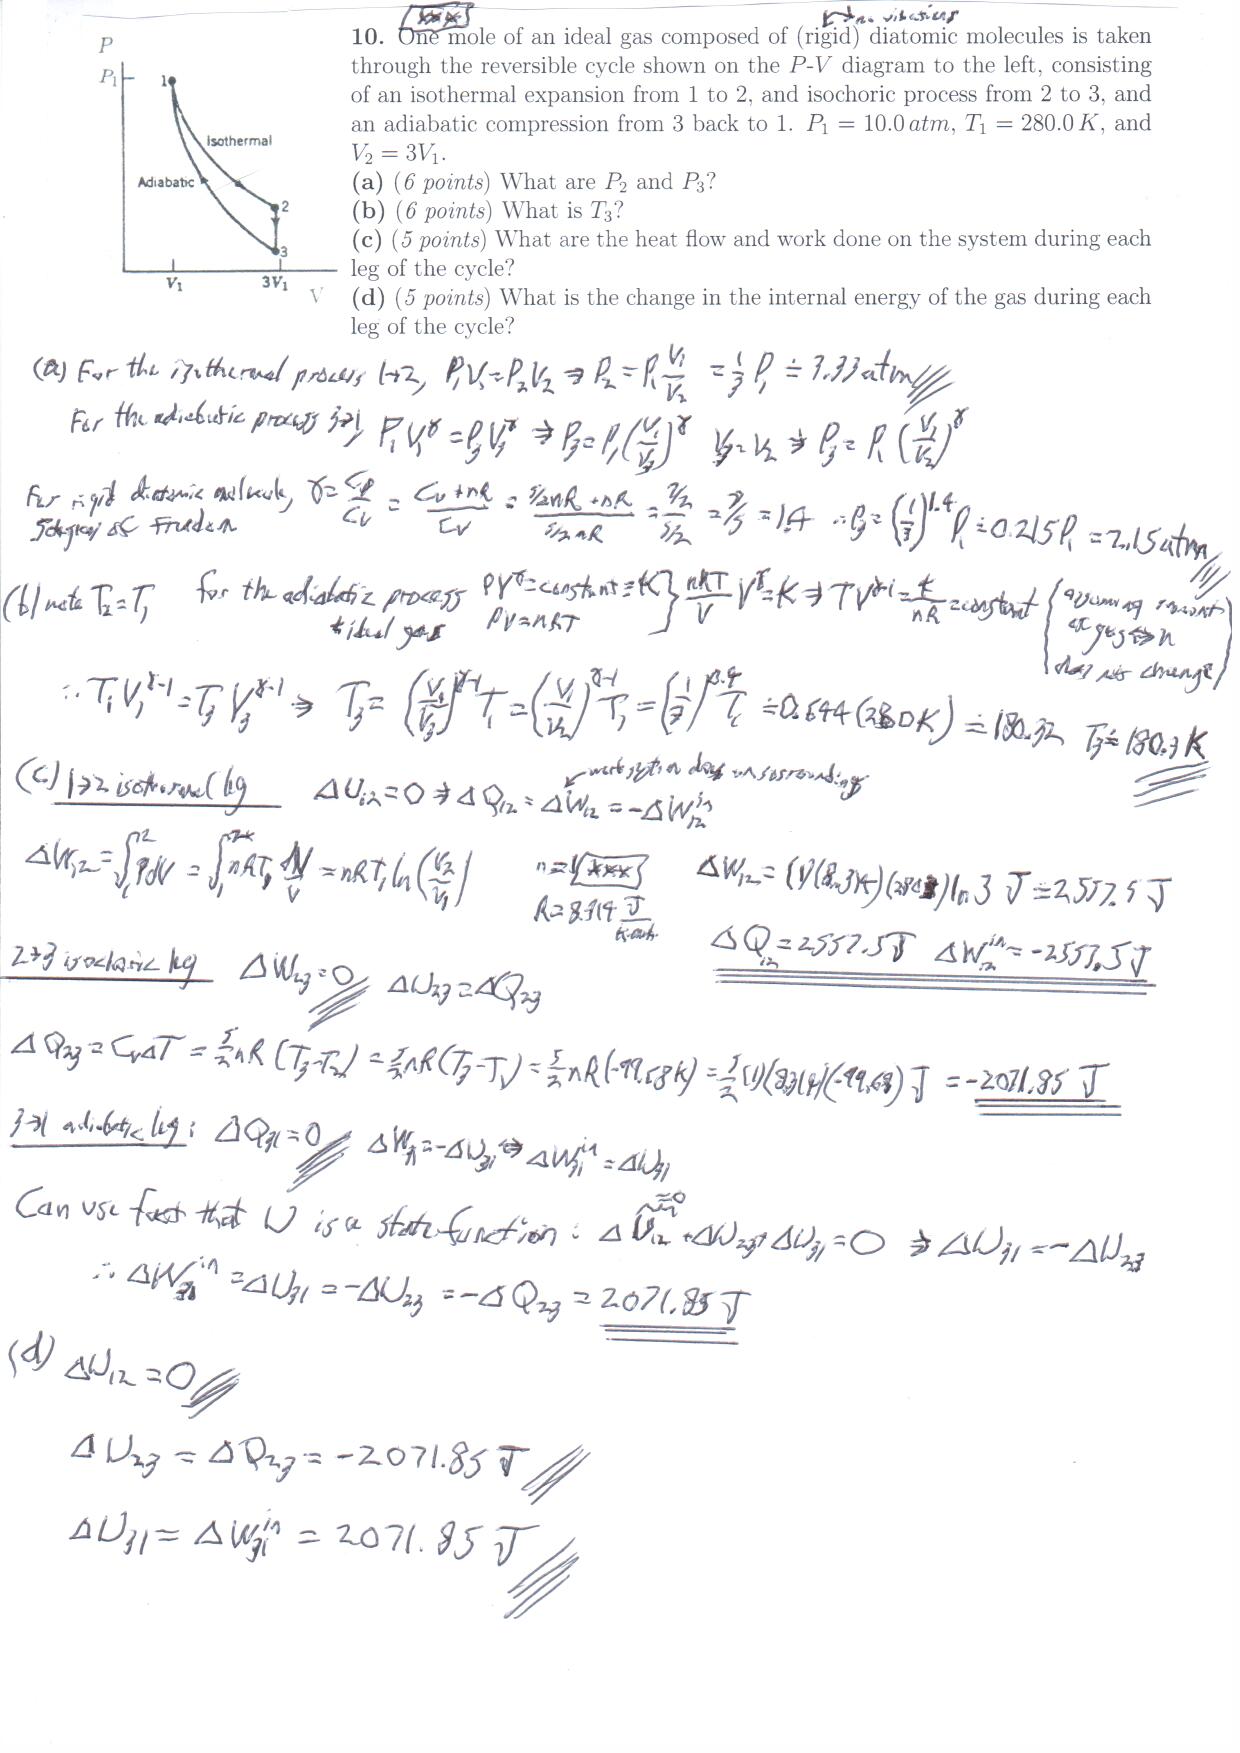 P
P₁
1
Isothermal
Adiabatic
2
3
V₁
3V₁
V
*** → no vibrations
10. One mole of an ideal gas composed of (rigid) diatomic molecules is taken
through the reversible cycle shown on the P-V diagram to the left, consisting
of an isothermal expansion from 1 to 2, and isochoric process from 2 to 3, and
an adiabatic compression from 3 back to 1. P₁ = 10.0 atm, T₁ = 280.0 K, and
V₂ = 3V₁.
(a) (6 points) What are P₂ and P₃?
(b) (6 points) What is T₃?
(c) (5 points) What are the heat flow and work done on the system during each
leg of the cycle?
(d) (5 points) What is the change in the internal energy of the gas during each
leg of the cycle?
(a) For the isothermal process 1→2, P₁V₁=P₂V₂ ⇒ P₂ = P₁ V₁/V₂ = 1/3 P₁ ≐ 3.33 atm
For the adiabatic process 3→1, P₁V₁^γ = P₃V₃^γ ⇒ P₃ = P₁(V₁/V₃)^γ V₃=V₂ ⇒ P₃ = P₁(V₁/V₂)^γ
For rigid diatomic molecule, γ = Cp/Cv = (Cv+nR)/Cv = (5/2nR+nR)/(5/2nR) = (7/2)/(5/2) = 7/5 = 1.4 ∴ P₃ = (1/3)^1.4 P₁ ≐ 0.215P₁ = 2.15 atm
5 degrees of freedom
(b) note T₂=T₁ for the adiabatic process PV^γ=constant=K } nRT/V V^γ=K ⇒ TV^γ-1 = K/nR = constant (assuming amount
+ ideal gas PV=nRT of gas ⇔ n
does not change)
∴ T₁V₁^γ-1 = T₃V₃^γ-1 ⇒ T₃ = (V₁/V₃)^γ-1 T₁ = (V₁/V₂)^γ-1 T₁ = (1/3)^0.4 T₁ ≐ 0.644(280K) ≐ 180.32 T₃ ≐ 180.3 K
(c) 1→2 isothermal leg ΔU₁₂=0 ⇒ ΔQ₁₂ = ΔW₁₂ = -ΔW₁₂^in
work system does on surroundings
ΔW₁₂ = ∫₁² PdV = ∫₁² nRT₁ dV/V = nRT₁ ln(V₂/V₁) n=1 *** ΔW₁₂ = (1)(8.314)(280) ln 3 J ≐ 2557.5 J
R=8.314 J/K·
ΔQ₁₂ = 2557.5 J ΔW₁₂^in = -2557.5 J
2→3 isochoric leg ΔW₂₃=0 ΔU₂₃=ΔQ₂₃
ΔQ₂₃ = CvΔT = 5/2 nR (T₃-T₂) = 5/2 nR (T₃-T₁) = 5/2 nR (-99.68K) = 5/2 (1)(8.314)(-99.68) J = -2071.85 J
3→1 adiabatic leg: ΔQ₃₁=0 ΔW₃₁=-ΔU₃₁ ⇔ ΔW₃₁^in = ΔU₃₁
Can use fact that U is a state function: ΔU₁₂ (=0) + ΔU₂₃ + ΔU₃₁ = 0 ⇒ ΔU₃₁ = -ΔU₂₃
∴ ΔW₃₁^in = ΔU₃₁ = -ΔU₂₃ = -ΔQ₂₃ = 2071.85 J
(d) ΔU₁₂ = 0
ΔU₂₃ = ΔQ₂₃ = -2071.85 J
ΔU₃₁ = ΔW₃₁^in = 2071.85 J